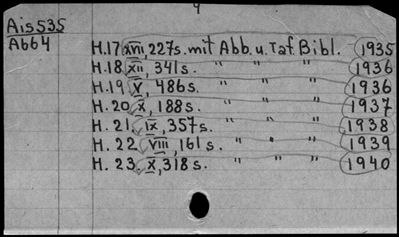 4
Ais535
A664
H.17 xvii, 227s. mit Abb. u. Taf. Bibl. 1935
H.18 xii, 341s. " " " 1936
H.19 v, 486s. " " " 1936
H.20 x, 188s. " " " 1937
H.21, ix, 357s. " " " 1938
H.22 viii, 161s. " " " 1939
H.23, x, 318s. " " " 1940